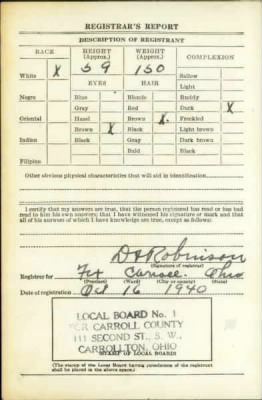 REGISTRAR'S REPORT
DESCRIPTION OF REGISTRANT
RACE HEIGHT (Approx.) WEIGHT (Approx.) COMPLEXION
White X 5 9 150 Sallow
EYES HAIR Light
Negro Blue Blonde Ruddy
Gray Red Dark X
Oriental Hazel Brown X Freckled
Brown X Black Light brown
Indian Black Gray Dark brown
Bald Black
Filipino
Other obvious physical characteristics that will aid in identification
I certify that my answers are true, that the person registered has read or has had
read to him his own answers; that I have witnessed his signature or mark and that
all of his answers of which I have knowledge are true, except as follows:
Robinson
(Signature of registrar)
Registrar for Ohio
(Precinct) (Ward) (City or county) (State)
Date of registration Oct 16 1940
LOCAL BOARD No. 1
FOR CARROLL COUNTY
111 SECOND ST., S. W.,
CARROLLTON, OHIO
(STAMP OF LOCAL BOARD)
(The stamp of the Local Board having jurisdiction of the registrant
shall be placed in the above space.)